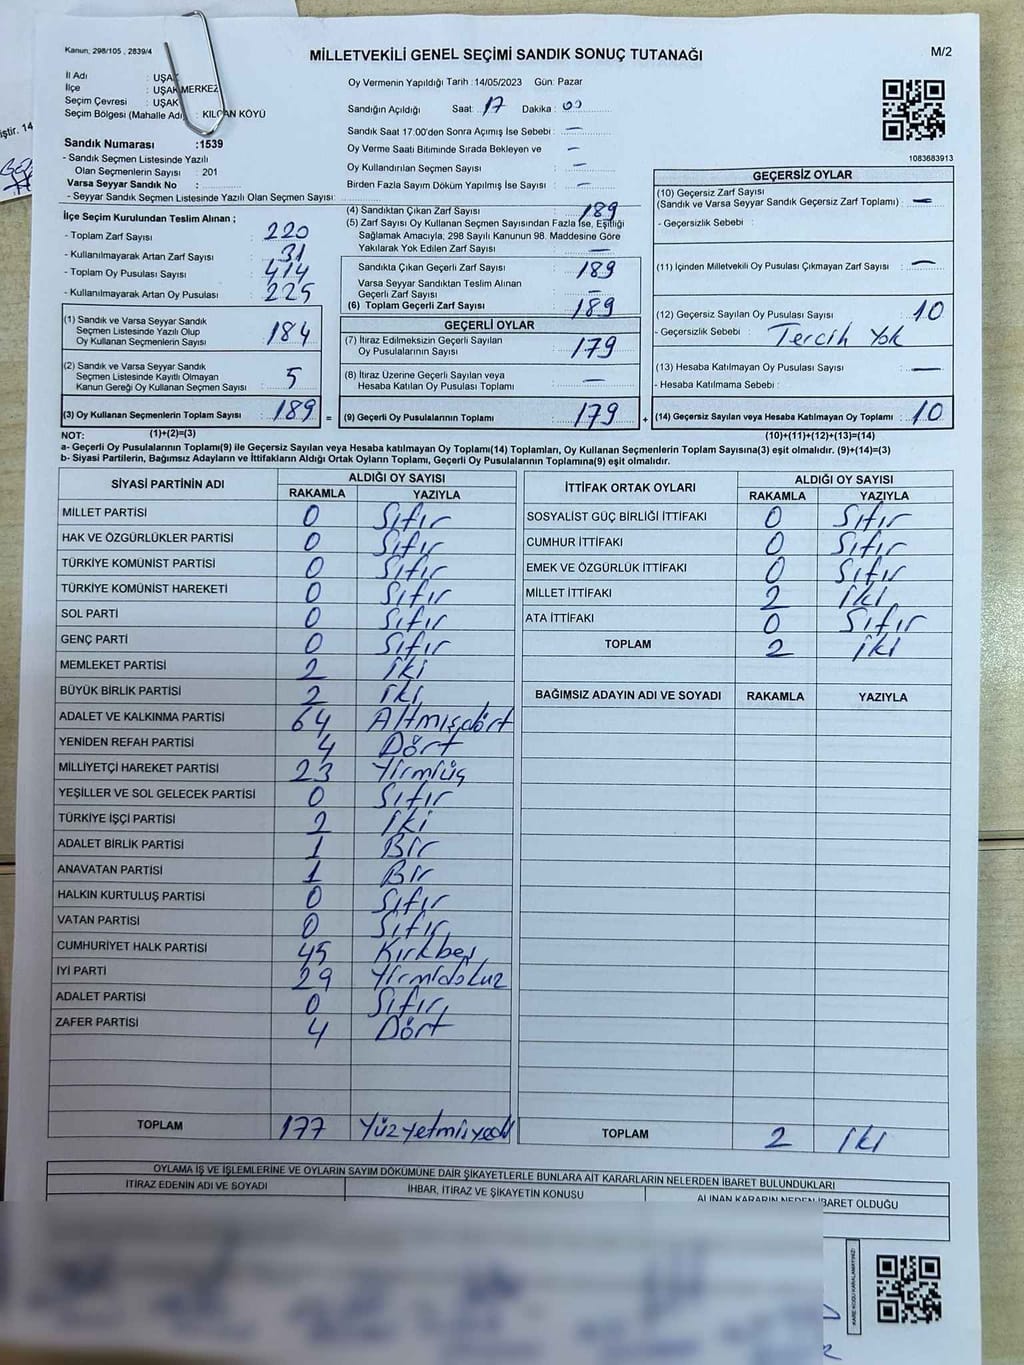 Kanun, 298/105 , 2839/4
MİLLETVEKİLİ GENEL SEÇİMİ SANDIK SONUÇ TUTANAĞI
M/2
İl Adı : UŞAK
İlçe : UŞAK MERKEZ
Seçim Çevresi : UŞAK
Seçim Bölgesi (Mahalle Adı) : KILCAN KÖYÜ
Sandık Numarası :1539
- Sandık Seçmen Listesinde Yazılı
Olan Seçmenlerin Sayısı : 201
Varsa Seyyar Sandık No :
- Seyyar Sandık Seçmen Listesinde Yazılı Olan Seçmen Sayısı:
Oy Vermenin Yapıldığı Tarih :14/05/2023 Gün: Pazar
Sandığın Açıldığı Saat: 17 Dakika : 00
Sandık Saat 17.00'den Sonra Açımış İse Sebebi : —
Oy Verme Saati Bitiminde Sırada Bekleyen ve —
Oy Kullandırılan Seçmen Sayısı : —
Birden Fazla Sayım Döküm Yapılmış İse Sayısı : —
1083683913
İlçe Seçim Kurulundan Teslim Alınan ;
- Toplam Zarf Sayısı : 220
- Kullanılmayarak Artan Zarf Sayısı : 31
- Toplam Oy Pusulası Sayısı : 414
- Kullanılmayarak Artan Oy Pusulası : 225
(1) Sandık ve Varsa Seyyar Sandık
Seçmen Listesinde Yazılı Olup
Oy Kullanan Seçmenlerin Sayısı : 184
(2) Sandık ve Varsa Seyyar Sandık
Seçmen Listesinde Kayıtlı Olmayan
Kanun Gereği Oy Kullanan Seçmen Sayısı : 5
(3) Oy Kullanan Seçmenlerin Toplam Sayısı : 189 =
(4) Sandıktan Çıkan Zarf Sayısı : 189
(5) Zarf Sayısı Oy Kullanan Seçmen Sayısından Fazla İse, Eşitliği
Sağlamak Amacıyla, 298 Sayılı Kanunun 98. Maddesine Göre
Yakılarak Yok Edilen Zarf Sayısı : —
Sandıkta Çıkan Geçerli Zarf Sayısı : 189
Varsa Seyyar Sandıktan Teslim Alınan
Geçerli Zarf Sayısı : —
(6) Toplam Geçerli Zarf Sayısı : 189
GEÇERLİ OYLAR
(7) İtiraz Edilmeksizin Geçerli Sayılan
Oy Pusulalarının Sayısı : 179
(8) İtiraz Üzerine Geçerli Sayılan veya
Hesaba Katılan Oy Pusulası Toplamı : —
(9) Geçerli Oy Pusulalarının Toplamı : 179 +
GEÇERSİZ OYLAR
(10) Geçersiz Zarf Sayısı
(Sandık ve Varsa Seyyar Sandık Geçersiz Zarf Toplamı) : —
- Geçersizlik Sebebi :
(11) İçinden Milletvekili Oy Pusulası Çıkmayan Zarf Sayısı : —
(12) Geçersiz Sayılan Oy Pusulası Sayısı : 10
- Geçersizlik Sebebi : Tercih Yok
(13) Hesaba Katılmayan Oy Pusulası Sayısı : —
- Hesaba Katılmama Sebebi :
(14) Geçersiz Sayılan veya Hesaba Katılmayan Oy Toplamı : 10
NOT: (1)+(2)=(3)
(10)+(11)+(12)+(13)=(14)
a- Geçerli Oy Pusulalarının Toplamı(9) ile Geçersiz Sayılan veya Hesaba katılmayan Oy Toplamı(14) Toplamları, Oy Kullanan Seçmenlerin Toplam Sayısına(3) eşit olmalıdır. (9)+(14)=(3)
b- Siyasi Partilerin, Bağımsız Adayların ve İttifakların Aldığı Ortak Oyların Toplamı, Geçerli Oy Pusulalarının Toplamına(9) eşit olmalıdır.
SİYASİ PARTİNİN ADI ALDIĞI OY SAYISI
RAKAMLA YAZIYLA
MİLLET PARTİSİ 0 Sıfır
HAK VE ÖZGÜRLÜKLER PARTİSİ 0 Sıfır
TÜRKİYE KOMÜNİST PARTİSİ 0 Sıfır
TÜRKİYE KOMÜNİST HAREKETİ 0 Sıfır
SOL PARTİ 0 Sıfır
GENÇ PARTİ 0 Sıfır
MEMLEKET PARTİSİ 2 iki
BÜYÜK BİRLİK PARTİSİ 2 iki
ADALET VE KALKINMA PARTİSİ 64 Altmışdört
YENİDEN REFAH PARTİSİ 4 Dört
MİLLİYETÇİ HAREKET PARTİSİ 23 Yirmiüç
YEŞİLLER VE SOL GELECEK PARTİSİ 0 Sıfır
TÜRKİYE İŞÇİ PARTİSİ 2 iki
ADALET BİRLİK PARTİSİ 1 Bir
ANAVATAN PARTİSİ 1 Bir
HALKIN KURTULUŞ PARTİSİ 0 Sıfır
VATAN PARTİSİ 0 Sıfır
CUMHURİYET HALK PARTİSİ 45 Kırkbeş
İYİ PARTİ 29 Yirmidokuz
ADALET PARTİSİ 0 Sıfır
ZAFER PARTİSİ 4 Dört
TOPLAM 177 Yüzyetmişyedi
İTTİFAK ORTAK OYLARI ALDIĞI OY SAYISI
RAKAMLA YAZIYLA
SOSYALİST GÜÇ BİRLİĞİ İTTİFAKI 0 Sıfır
CUMHUR İTTİFAKI 0 Sıfır
EMEK VE ÖZGÜRLÜK İTTİFAKI 0 Sıfır
MİLLET İTTİFAKI 2 iki
ATA İTTİFAKI 0 Sıfır
TOPLAM 2 iki
BAĞIMSIZ ADAYIN ADI VE SOYADI RAKAMLA YAZIYLA
TOPLAM 2 iki
OYLAMA İŞ VE İŞLEMLERİNE VE OYLARIN SAYIM DÖKÜMÜNE DAİR ŞİKAYETLERLE BUNLARA AİT KARARLARIN NELERDEN İBARET BULUNDUKLARI
İTİRAZ EDENİN ADI VE SOYADI İHBAR, İTİRAZ VE ŞİKAYETİN KONUSU ALINAN KARARIN NEDEN İBARET OLDUĞU